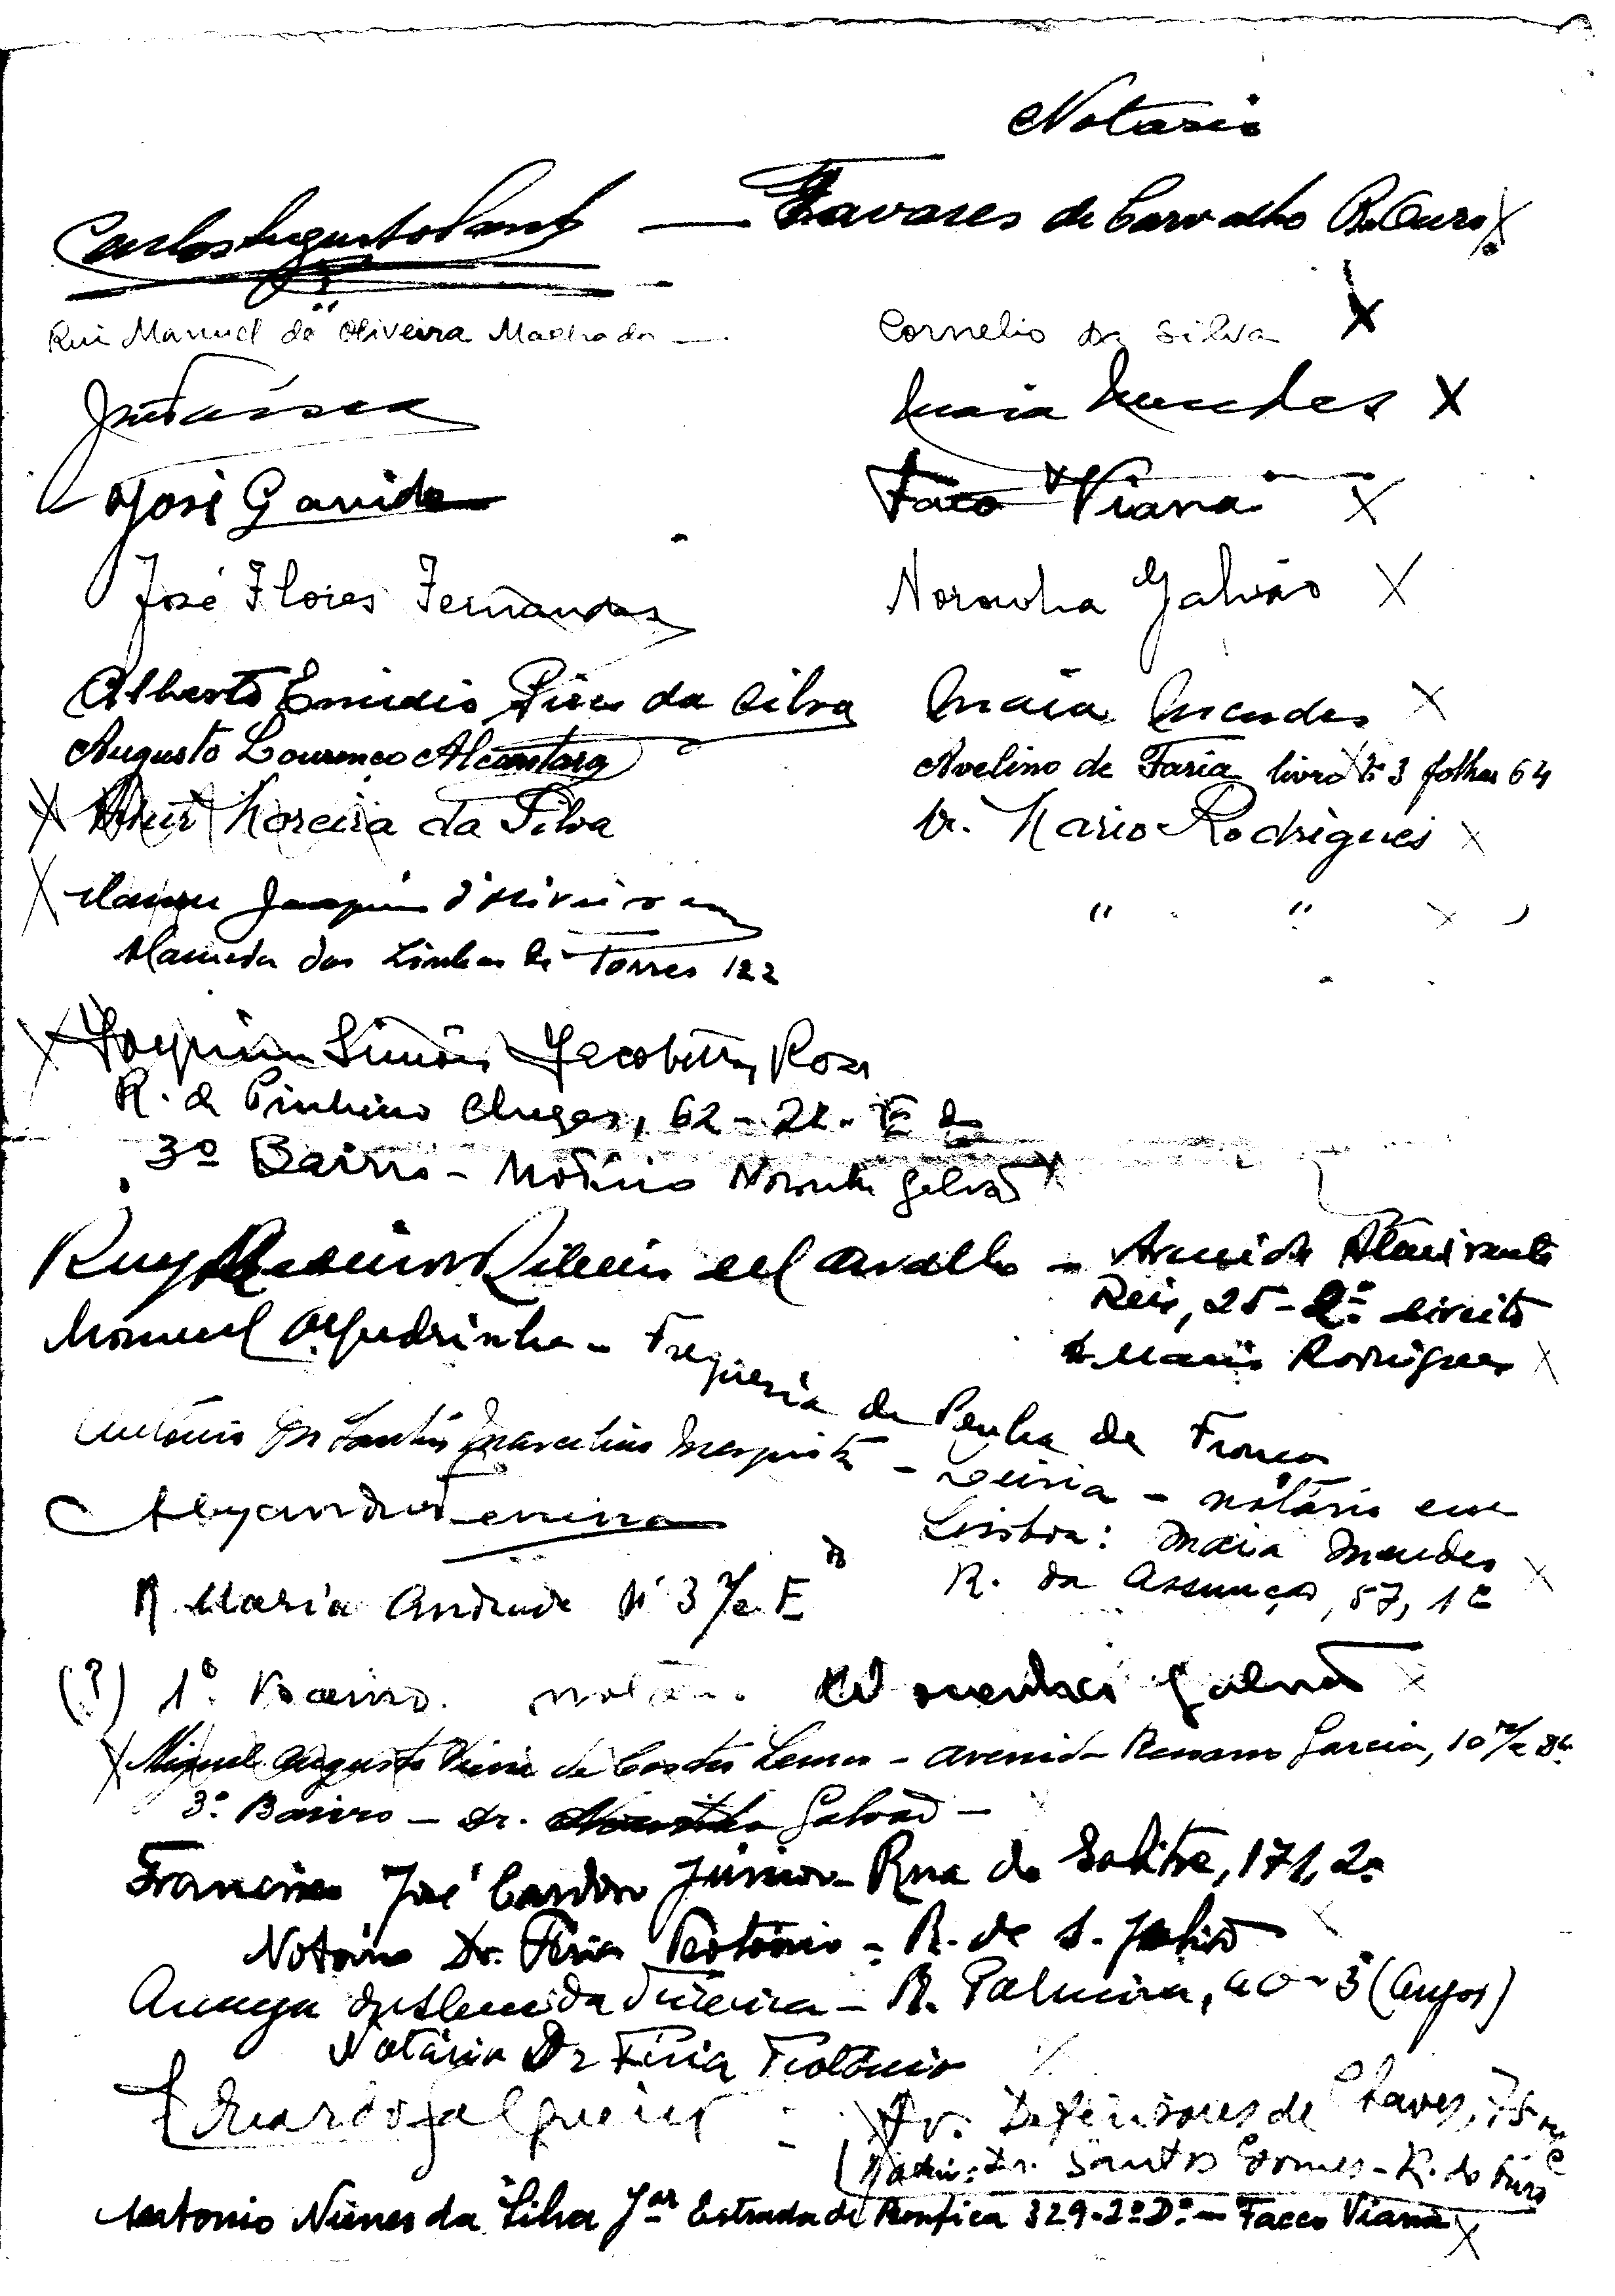 Notario
Carlos Augusto — Tavares de Carvalho R. Ouro X
Rui Manuel de Oliveira Machado — Cornelio da Silva X
Maia Mendes X
José Garrido Faco Viana X
José Flores Fernandes Noronha Galvão X
Alberto Emidio Pires da Silva Maia Mendes X
Augusto Lourenço Alcantara Avelino de Faria livro Nº 3 folhas 64
X Moreira da Silva Dr. Mario Rodrigues X
X Joaquim d'Oliveira " " X
Alameda das Linhas de Torres 122
X Joaquim Simões Rosa
R. de Pinheiro Chagas, 62 - 2º
3º Bairro - Notário Noronha Galvão X
Ruy Ribeiro de Carvalho - Avenida Almirante
Reis, 25 - 2º direito
Mario Rodrigues X
Manuel - Freguesia da Penha de França
António dos Santos Marcelino Mesquita - Leiria - notário em
Lisboa: Maia Mendes X
R. da Assunção, 57, 1º
Ferreira
R. Maria Andrade Nº 3 r/c E
(?) 1º Bairro. notário. Noronha Galvão X
X Miguel Augusto de Castro Lemos - Avenida Ressano Garcia, 10 r/c
3º Bairro - Dr. Noronha Galvão -
Francisco José Cardoso Júnior - Rua do Salitre, 171, 2º
Notário Dr. Faria Teotónio - R. de S. Julião
de Almeida - R. Palmira, 40 - 3 (Anjos)
Notário Dr Faria Teotónio
Eduardo Salgueiro - Av. Defensores de Chaves, 75
Dr. Santos Gomes - R. do Ouro
Antonio Nunes da Silva Jor Estrada de Benfica 329-2º Dº - Facco Viana X